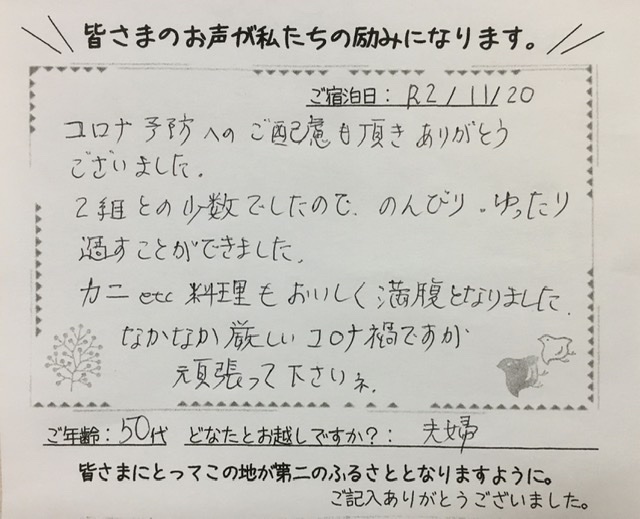 皆さまのお声が私たちの励みになります。
ご宿泊日: R2/11/20
コロナ予防へのご配慮も頂きありがとう
ございました.
2組との少数でしたので、のんびり。ゆったり
過すことができました.
カニetc料理もおいしく満腹となりました.
なかなか厳しいコロナ禍ですが
頑張って下さいネ.
ご年齢:50代 どなたとお越しですか?: 夫婦
皆さまにとってこの地が第二のふるさととなりますように。
ご記入ありがとうございました。